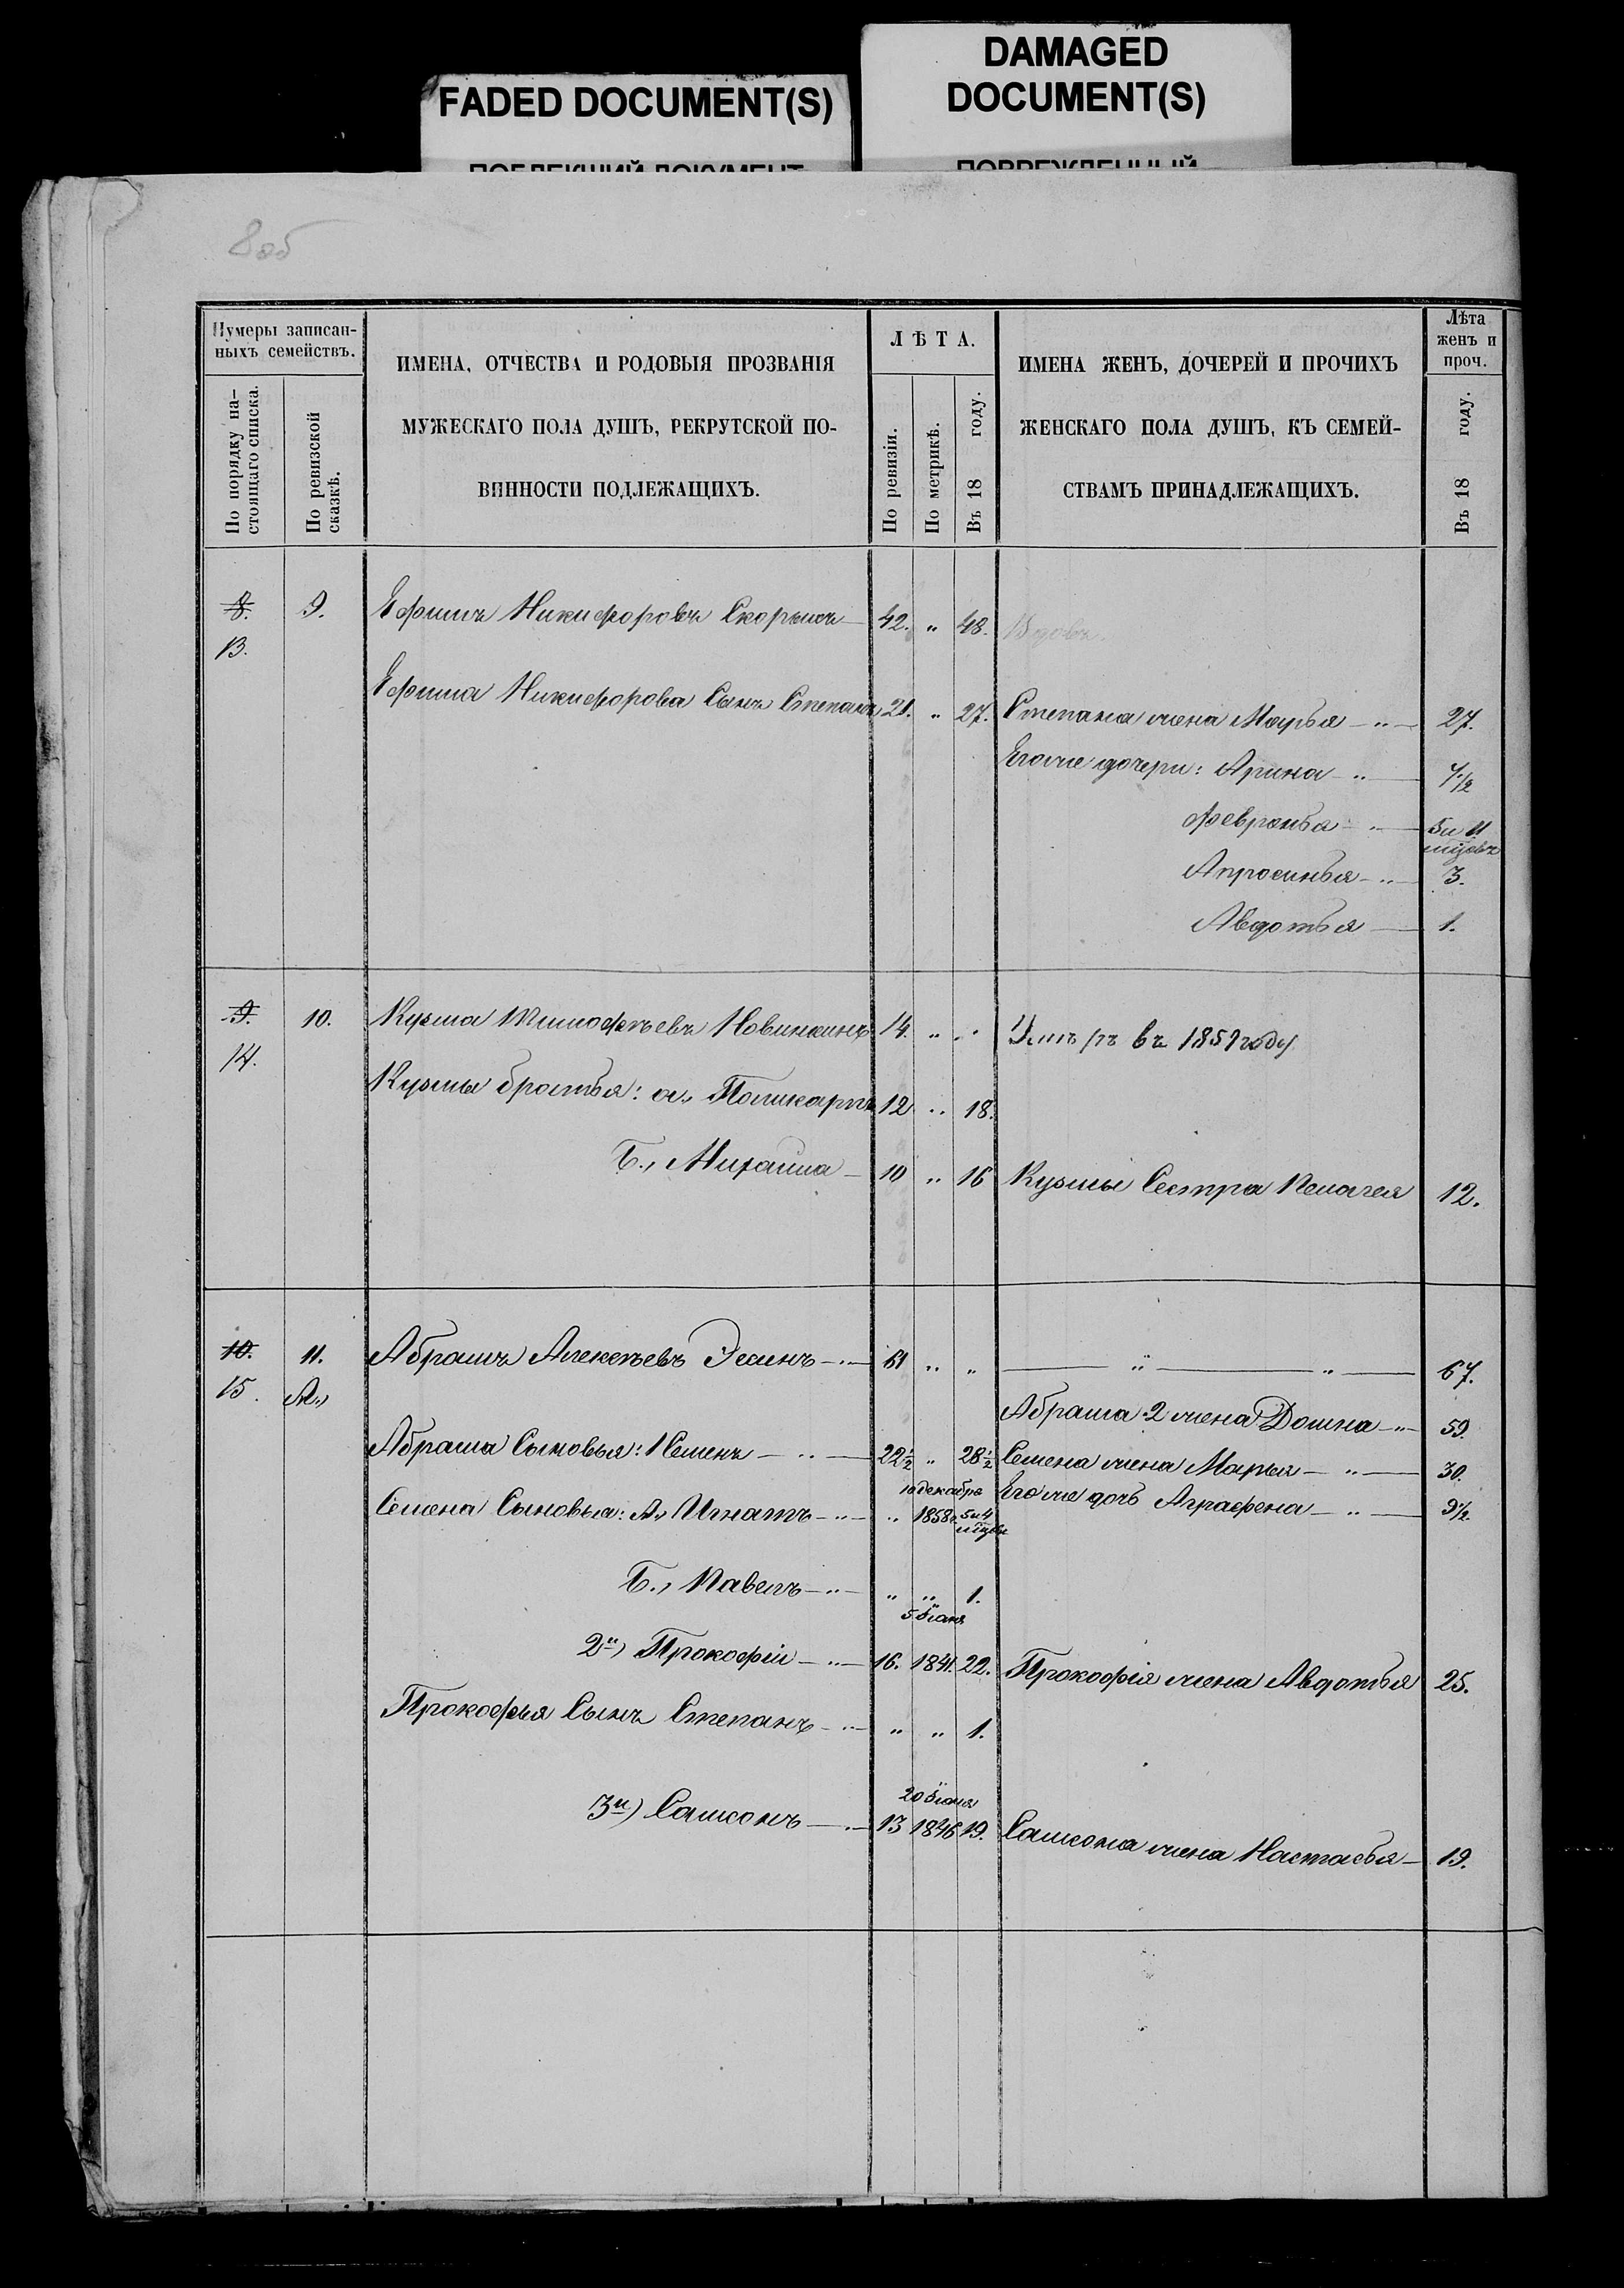 FADED DOCUMENT(S)
DAMAGED
DOCUMENT(S)
ПОБЛЕКШИЙ ДОКУМЕНТ
ПОВРЕЖДЕННЫЙ
8об
Нумеры записан-
ныхъ семействъ.
По порядку на-
стоящаго списка.
По ревизской
сказкѣ.
ИМЕНА, ОТЧЕСТВА И РОДОВЫЯ ПРОЗВАНІЯ
МУЖЕСКАГО ПОЛА ДУШЪ, РЕКРУТСКОЙ ПО-
ВИННОСТИ ПОДЛЕЖАЩИХЪ.
ЛѢТА.
По ревизіи.
По метрикѣ.
Въ 18 году.
ИМЕНА ЖЕНЪ, ДОЧЕРЕЙ И ПРОЧИХЪ
ЖЕНСКАГО ПОЛА ДУШЪ, КЪ СЕМЕЙ-
СТВАМЪ ПРИНАДЛЕЖАЩИХЪ.
Лѣта
женъ и
проч.
Въ 18 году.
8. 9. Ефимъ Никифоровъ 42. " 48. Вдовъ.
13.
Ефима Никифорова Сынъ Степанъ 21. " 27. Степана жена Марья — " — 27.
Его же дочери: Арина — " — 7 1/2
Февронья — " — 5 и 11
мцовъ
Апросинья — " — 3.
Авдотья — 1.
9. 10. Кузма Тимофѣевъ Новинкинъ 14. " " въ 1859 году
14.
Кузмы братья: а., Поликарпъ 12 " 18.
Б., Михаила — 10 " 16 Кузмы Сестра Пелагея 12.
10. 11. Абрамъ Алексѣевъ — " — 61 " " — " — " — 67.
15. А.,
Абрама 2 жена Домна — " — 59.
Абрама Сыновья: 1 Семенъ — " — 22 1/2 " 28 1/2 Семена жена Марья — " — 30.
10 декабря
Семена Сыновья: А., Игнатъ — " — " 1858г. 5 и 4 Его же дочь Аграфена — " — 9 1/2.
мцовъ
Б., Павелъ — " — " " 1.
5 Іюня
2й) Прокофій — " — 16. 1841. 22. Прокофія жена Авдотья 25.
Прокофья Сынъ Степанъ — " — " " 1.
20 Іюня
3й) Самсонъ — " — 13 1846 19. Самсона жена Настасья — 19.